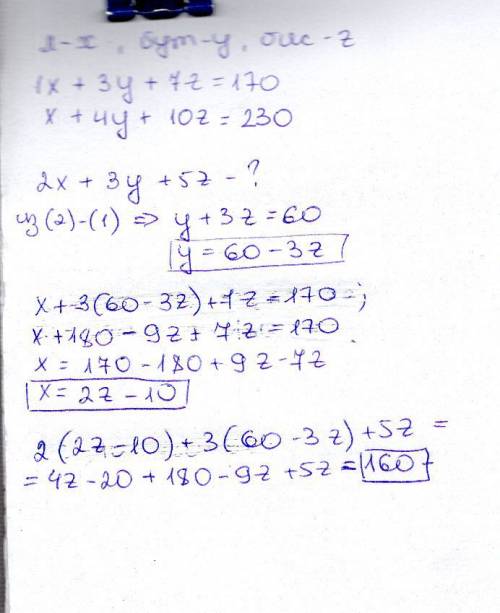 я-x, бут-y, бис-z
1x + 3y + 7z = 170
x + 4y + 10z = 230
2x + 3y + 5z - ?
из (2)-(1) => y + 3z = 60
y = 60 - 3z
x + 3(60 - 3z) + 7z = 170 -;
x + 180 - 9z + 7z = 170
x = 170 - 180 + 9z - 7z
x = 2z - 10
2(2z-10) + 3(60 - 3z) + 5z =
= 4z - 20 + 180 - 9z + 5z = 160